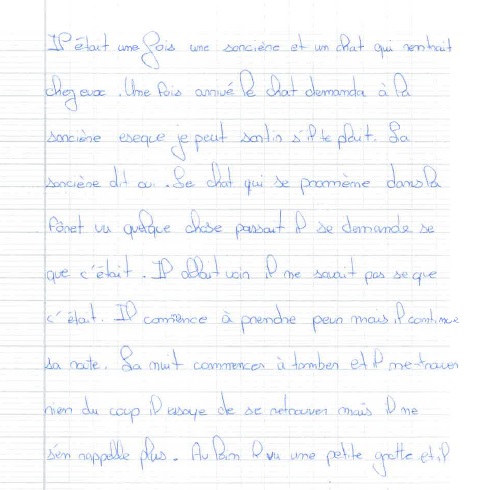 Il était une fois une sorcière et un chat qui rentrait
chez eux. Une fois arrivé le chat demanda à la
sorcière eseque je peut sortir s'il te plait. La
sorcière dit oui. Le chat qui se promène dans la
fôret vu quelque chose passait il se demande se
que c'était. Il allait voir il ne savait pas se que
c'était. Il commence à prendre peur mais il continue
sa route. La nuit commencer à tomber et il ne trouver
rien du coup il essaye de se retrouver mais il ne
s'en rappelle plus. Au loin il vu une petite grotte et il